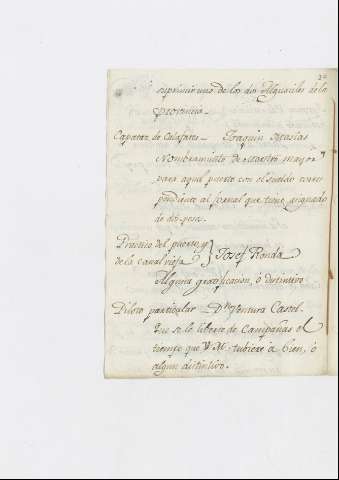 suprimir uno de los dos Alguaciles de la
Provincia.
Capataz de Calafates - Joaquin Masias
Nombramiento de Maestro mayor
para aquel puerto con el sueldo corres
pondiente al jornal que tiene asignado
de dos pesos.
Práctico del puerto, y
de la canal vieja } Josef Ronda
Alguna gratificacion, ó distintivo
Piloto particular - Dn Ventura Castel.
Que se le liberte de Campañas el
tiempo que V.M. tubiere á bien, ó
algun distintivo.